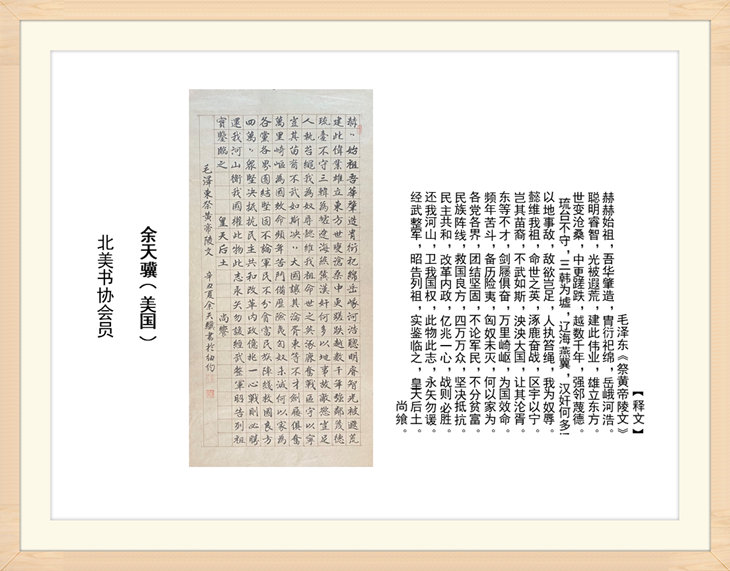 【释文】
毛泽东《祭黄帝陵文》
赫赫始祖，吾华肇造，胄衍祀绵，岳峨河浩。
聪明睿智，光被遐荒，建此伟业，雄立东方。
世变沧桑，中更蹉跌，越数千年，强邻蔑德。
琉台不守，三韩为墟，辽海燕冀，汉奸何多
以地事敌，敌欲岂足，人执笞绳，我为奴辱。
懿维我祖，命世之英，涿鹿奋战，区宇以宁。
岂其苗裔，不武如斯，泱泱大国，让其沦胥。
东等不才，剑屦俱奋，万里崎岖，为国效命。
频年苦斗，备历险夷，匈奴未灭，何以家为。
各党各界，团结坚固，不论军民，不分贫富。
民族阵线，救国良方，四万万众，坚决抵抗。
民主共和，改革内政，亿兆一心，战则必胜。
还我河山，卫我国权，此物此志，永矢勿谖。
经武整军，昭告列祖，实鉴临之，皇天后土。
尚飨。
赫〻始祖吾華肇造胄衍祀綿岳峨河浩聰明睿智光被遐荒
建此偉業雄立東方世變滄桑中更蹉跌越數千年強鄰蔑德
琉臺不守三韓為墟遼海燕冀漢奸何多以地事敵敵欲豈足
人執笞繩我為奴辱懿維我祖命世之英涿鹿奮戰區宇以寧
豈其苗裔不武如斯泱〻大國讓其淪胥東等不才劍屨俱奮
萬里崎嶇為國效命頻年苦鬥備歷險夷匈奴未滅何以家為
各黨各界團結堅固不論軍民不分貧富民族陣綫救國良方
四萬〻眾堅決抵抗民主共和改革內政億兆一心戰則必勝
還我河山衛我國權此物此志永矢勿諼經武整軍昭告列祖
實鑒臨之 皇天后土 尚饗
毛澤東祭黃帝陵文 辛丑夏余天驥書於紐約
余天骥（美国）
北美书协会员